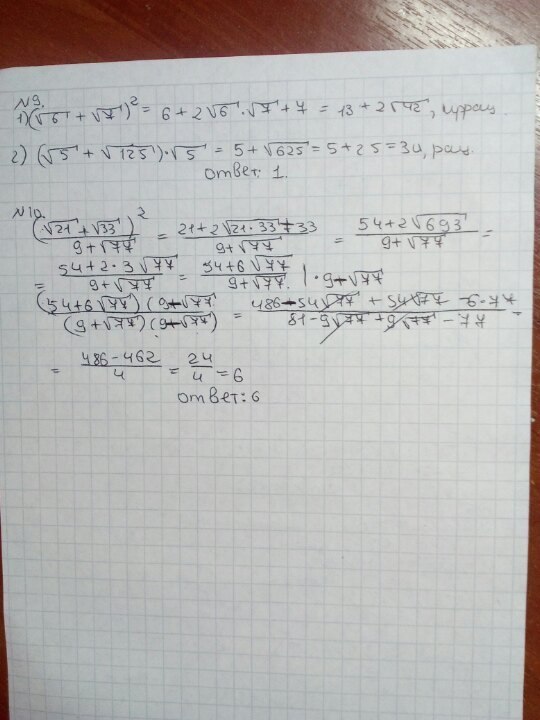 №9.
1) (√6 + √7)² = 6 + 2√6 · √7 + 7 = 13 + 2√42, иррац.
2) (√5 + √125) · √5 = 5 + √625 = 5 + 25 = 30, рац.
ответ: 1.
№10.
(√21 + √33)² / (9 + √77) = (21 + 2√(21 · 33) + 33) / (9 + √77) = (54 + 2√693) / (9 + √77) =
= (54 + 2 · 3√77) / (9 + √77) = (54 + 6√77) / (9 + √77) | · 9 - √77
(54 + 6√77)(9 - √77) / (9 + √77)(9 - √77) = (486 - 54√77 + 54√77 - 6 · 77) / (81 - 9√77 + 9√77 - 77) =
= (486 - 462) / 4 = 24 / 4 = 6
ответ: 6